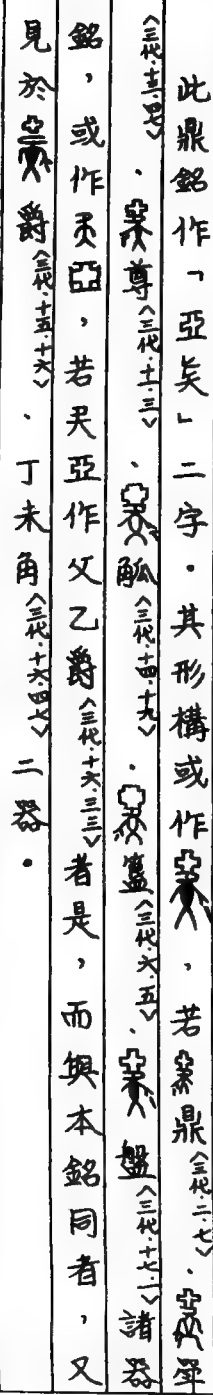 此鼎銘作「亞矣」二字。其形構或作，若鼎〈三代·二·七〉、斝
〈三代·十三·四七〉、尊〈三代·十一·三〉、觚〈三代·十四·十九〉、簋〈三代·六·五〉、盤〈三代·十七·一〉諸器
銘，或作，若矣亞作父乙爵〈三代·十六·三三〉者是，而與本銘同者，又
見於爵〈三代·十五·十六〉、丁未角〈三代·十六·四七〉二器。